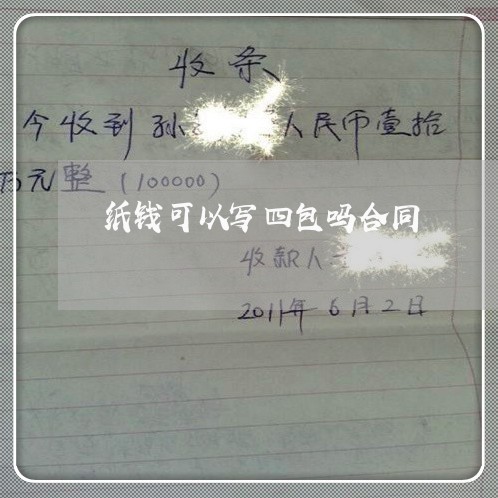 收条
今收到孙 人民币壹拾
万元整(100000)
纸钱可以写四包吗合同
收款人:
2011年6月2日